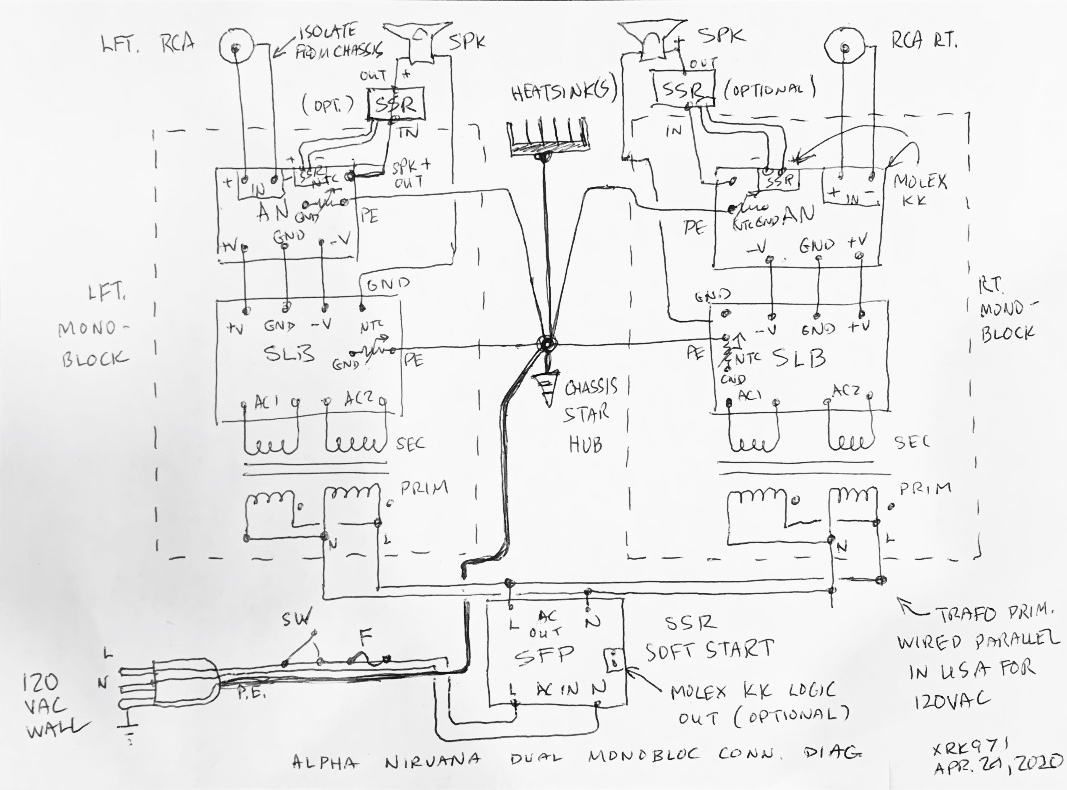 LFT. RCA
ISOLATE
FROM CHASSIS
SPK
OUT +
(OPT.)
SSR
IN
SPK+
OUT
HEATSINK(S)
SPK
+
OUT
SSR
(OPTIONAL)
IN
RCA RT.
+
IN
-
+
-
SSR
NTC
AN
GND
PE
+V
GND
-V
GND
+V
GND
-V
NTC
SLB
GND
PE
AC1
AC2
SEC
PRIM
N
L
LFT.
MONO-
BLOCK
CHASSIS
STAR
HUB
-
SSR
+
IN
-
MOLEX
KK
PE
NTC
GND
AN
-V
GND
+V
GND
-V
GND
+V
PE
NTC
SLB
GND
AC1
AC2
SEC
PRIM
N
L
RT.
MONO-
BLOCK
SW
F
L
N
P.E.
120
VAC
WALL
L
AC
OUT
N
SFP
L
AC IN
N
SSR
SOFT START
MOLEX KK LOGIC
OUT (OPTIONAL)
TRAFO PRIM.
WIRED PARALLEL
IN USA FOR
120VAC
ALPHA NIRVANA DUAL MONOBLOC CONN. DIAG
XRK971
APR. 29, 2020